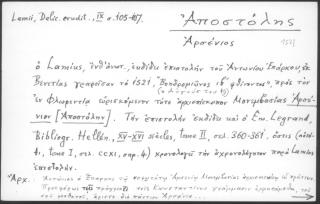 Lamii, Delic. erudit., IX σ. 105-107.
Ἀποστόλης
Ἀρσένιος
1521
ὁ Lamius, ἐνθ' ἀνωτ., ἐκδίδει ἐπιστολὴν τοῦ Ἀντωνίου Ἐπάρχου, ἐκ
Βενετίας γραφεῖσαν τὸ 1521, "Βοηδρομιῶνος φθίνοντος", πρὸς τὸν
ἐν Φλωρεντίᾳ εὑρισκόμενον τότε ἀρχιεπίσκοπον Μονεμβασίας Ἀρσέ-
νιον [Ἀποστόλην]. Τὴν ἐπιστολὴν ἐκδίδει καὶ ὁ Em. Legrand,
Bibliogr. Hellén., XV-XVI siècles, tome II, σελ. 360-361, ὅστις
tome I, σελ. CCXI, σημ. 4) χρονολογεῖ τὴν ἀχρονολόγητον παρὰ Lamius
ἐπιστολήν.
Ἀρχ. Ἀντώνιος ὁ Ἔπαρχος τῷ Ἀρσενίῳ Μονεμβασίας